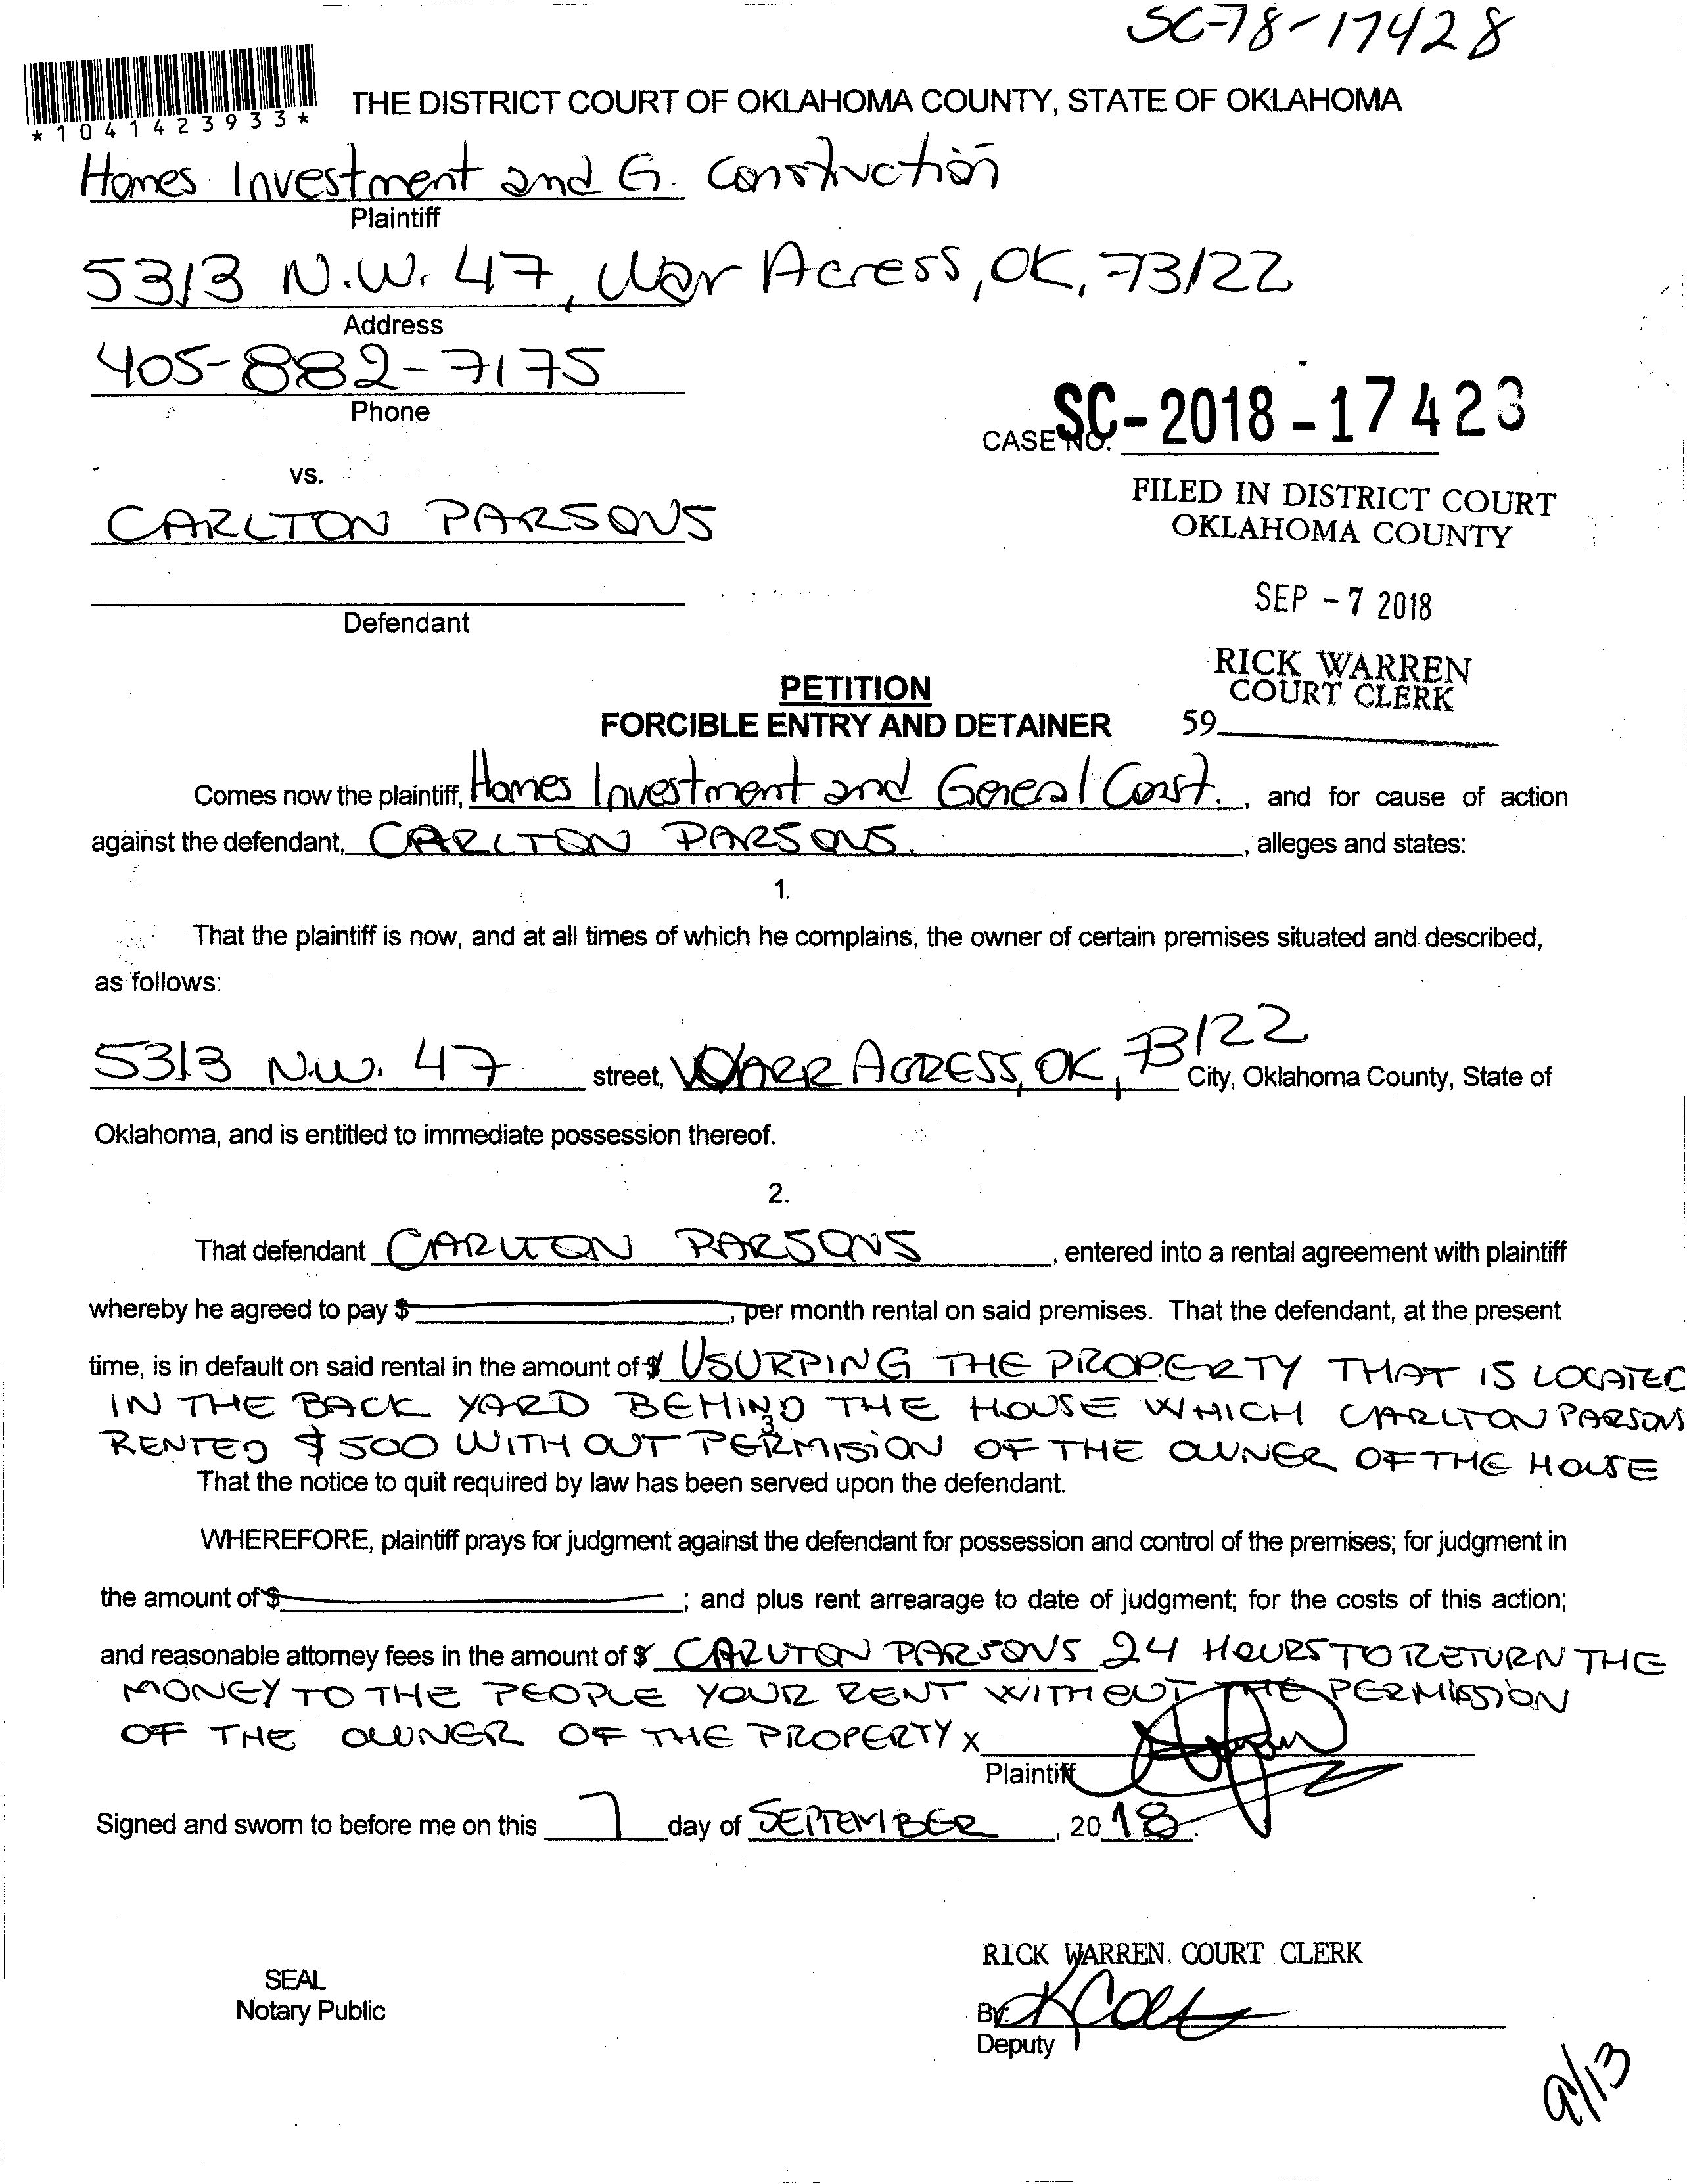 SC-18-17428
*1041423933*
THE DISTRICT COURT OF OKLAHOMA COUNTY, STATE OF OKLAHOMA
Homes Investment and G. Construction
Plaintiff
5313 N.W. 47, War Acress, OK, 73122
Address
405-882-7175
Phone
CASE NO. SC-2018-17428
vs.
FILED IN DISTRICT COURT
OKLAHOMA COUNTY
CARLTON PARSONS
SEP -7 2018
Defendant
RICK WARREN
COURT CLERK
59
PETITION
FORCIBLE ENTRY AND DETAINER
Comes now the plaintiff, Homes Investment and General Const., and for cause of action
against the defendant, CARLTON PARSONS., alleges and states:
1.
That the plaintiff is now, and at all times of which he complains, the owner of certain premises situated and described,
as follows:
5313 N.W. 47 street, WARR ACRESS, OK, 73122 City, Oklahoma County, State of
Oklahoma, and is entitled to immediate possession thereof.
2.
That defendant CARLTON PARSONS, entered into a rental agreement with plaintiff
whereby he agreed to pay $, per month rental on said premises. That the defendant, at the present
time, is in default on said rental in the amount of $ USURPING THE PROPERTY THAT IS LOCATED
IN THE BACK YARD BEHIND THE HOUSE WHICH CARLTON PARSONS
3.
RENTED $500 WITH OUT PERMISION OF THE OWNER OF THE HOUSE
That the notice to quit required by law has been served upon the defendant.
WHEREFORE, plaintiff prays for judgment against the defendant for possession and control of the premises; for judgment in
the amount of $; and plus rent arrearage to date of judgment; for the costs of this action;
and reasonable attorney fees in the amount of $ CARLTON PARSONS 24 HOURS TO RETURN THE
MONEY TO THE PEOPLE YOUR RENT WITHOUT THE PERMISSION
OF THE OWNER OF THE PROPERTY X
Plaintiff
Signed and sworn to before me on this 7 day of SEPTEMBER, 2018.
RICK WARREN, COURT CLERK
SEAL
Notary Public
By:
Deputy
9/13